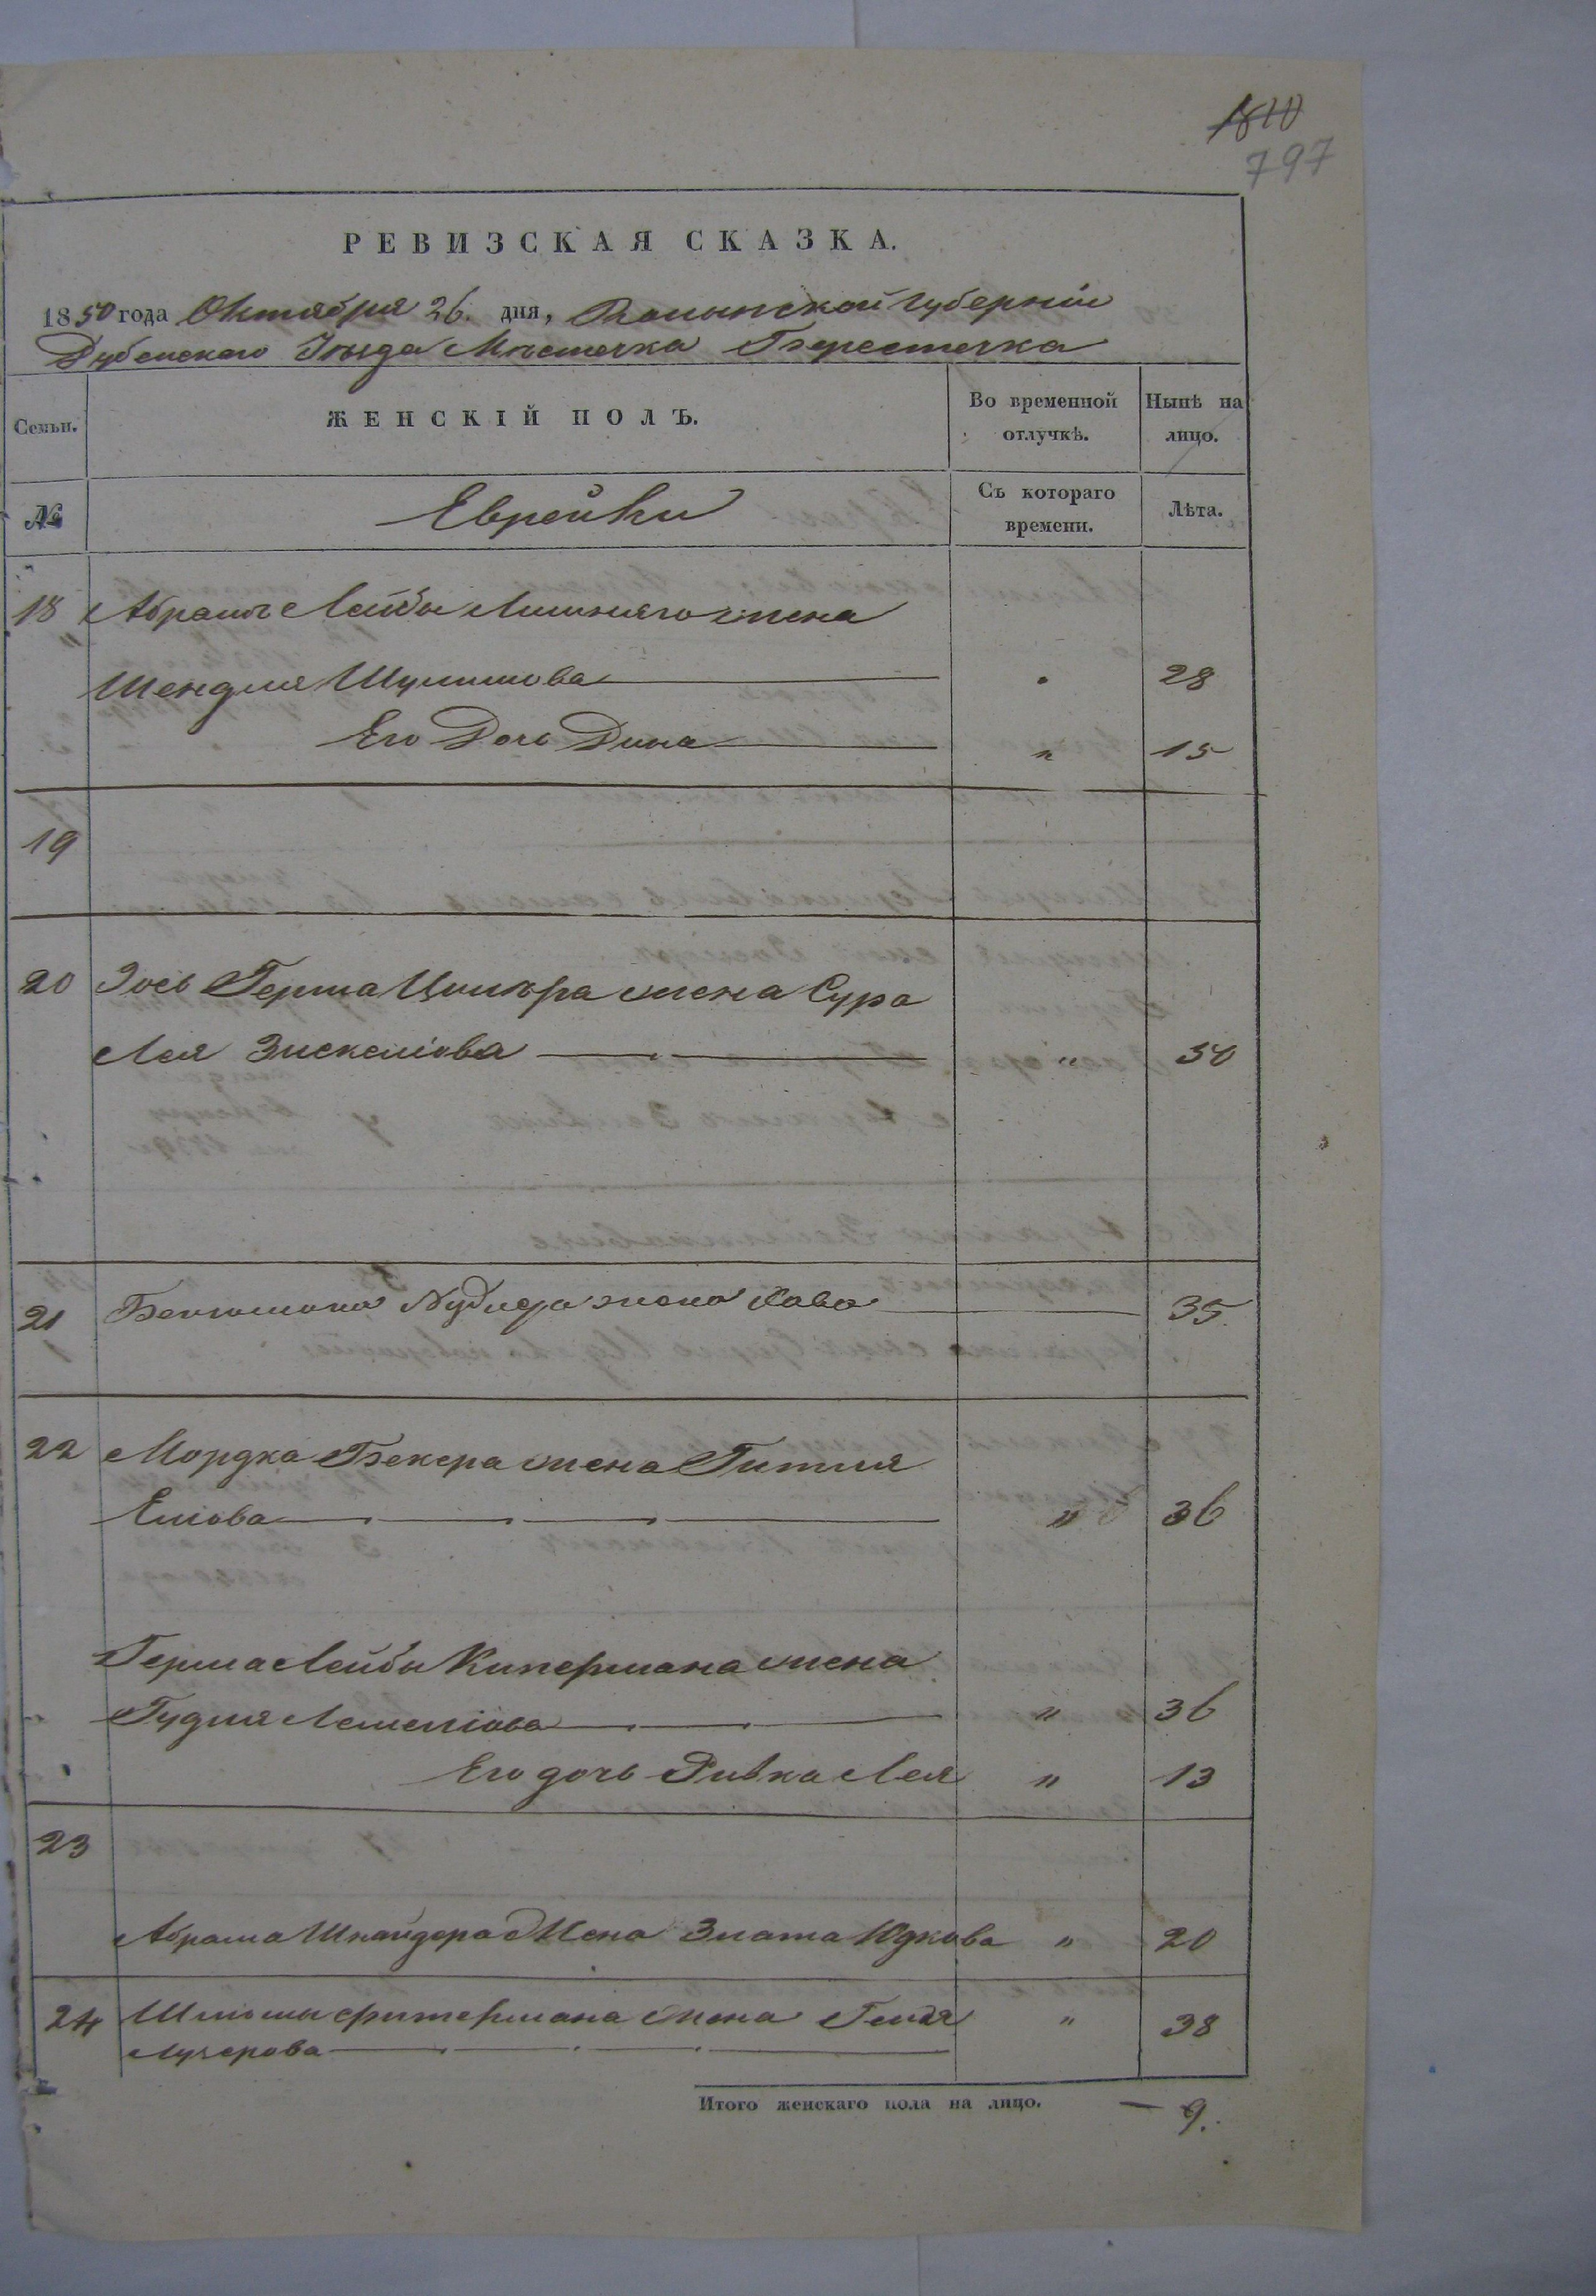 1810
797
РЕВИЗСКАЯ СКАЗКА.
1850 года Октября 26. дня, Волынской Губерніи
Дубенскаго Уѣзда Мѣстечка Берестечка
Семьи. ЖЕНСКІЙ ПОЛЪ. Во временной отлучкѣ. Нынѣ на лицо.
№ Еврейки Съ котораго времени. Лѣта.
18 Абрамъ Лейбы жена
Шендля Шулимова " 28
Его Дочь Дина " 15
19
20 Іось Герша жена Сура
Лея Зискеліова " 50
21 жена Хава 35.
22 Мордка Бекера жена Гитля
Еліова " 36
Герша Лейбы Кипермана жена
Гудля " 36
Его дочь Ривка Лея " 13
23
Абрама Шнайдера Жена Злата Юдкова " 20
24 Шліомы Фитермана жена " 38
Итого женскаго пола на лицо. — 9.